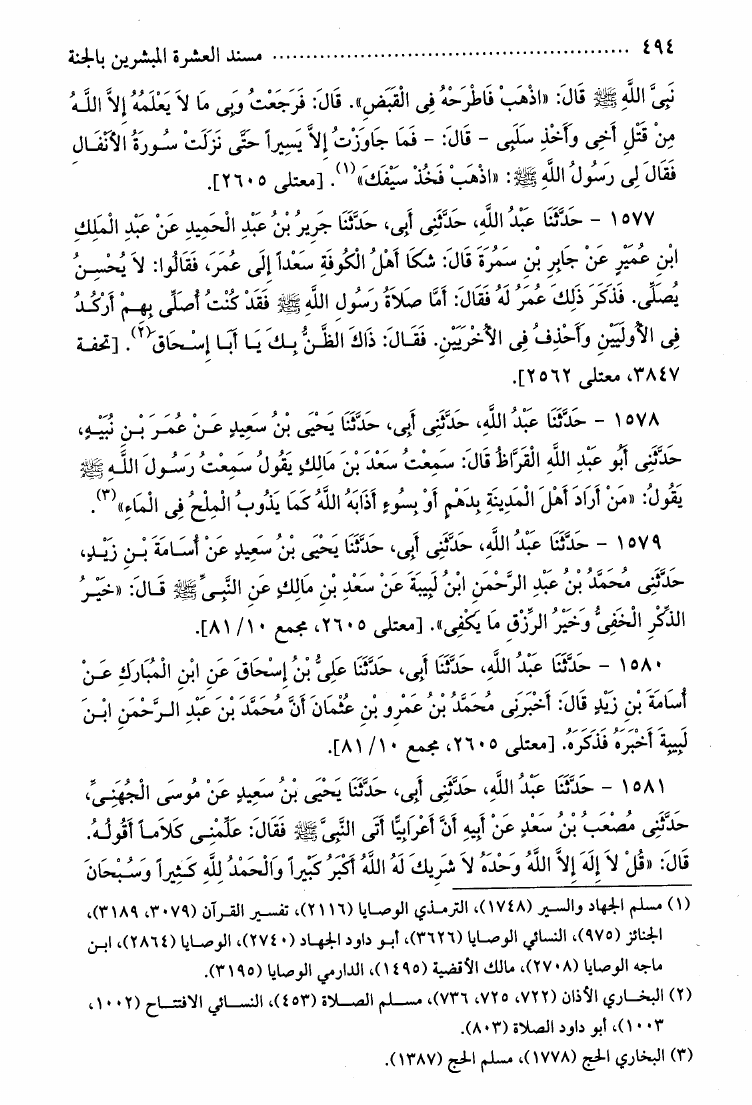 ٤٩٤ ................................................ مسند العشرة المبشرين بالجنة
نَبِىَّ اللَّهِ ﷺ قَالَ: «اذْهَبْ فَاطْرَحْهُ فِى الْقَبَضِ». قَالَ: فَرَجَعْتُ وَبِى مَا لَا يَعْلَمُهُ إِلاَّ اللَّهُ
مِنْ قَتْلِ أَخِى وَأَخْذِ سَلَبِى - قَالَ: - فَمَا جَاوَزْتُ إِلاَّ يَسِيراً حَتَّى نَزَلَتْ سُورَةُ الأَنْفَالِ
فَقَالَ لِى رَسُولُ اللَّهِ ﷺ: «اذْهَبْ فَخُذْ سَيْفَكَ»(١). [معتلى ٢٦٠٥].
١٥٧٧ - حَدَّثَنَا عَبْدُ اللَّهِ، حَدَّثَنِى أَبِى، حَدَّثَنَا جَرِيرُ بْنُ عَبْدِ الْحَمِيدِ عَنْ عَبْدِ الْمَلِكِ
ابْنِ عُمَيْرٍ عَنْ جَابِرِ بْنِ سَمُرَةَ قَالَ: شَكَا أَهْلُ الْكُوفَةِ سَعْداً إِلَى عُمَرَ، فَقَالُوا: لاَ يُحْسِنُ
يُصَلِّى. فَذَكَرَ ذَلِكَ عُمَرُ لَهُ فَقَالَ: أَمَّا صَلاَةُ رَسُولِ اللَّهِ ﷺ فَقَدْ كُنْتُ أُصَلِّى بِهِمْ أَرْكُدُ
فِى الأُولَيَيْنِ وَأَحْذِفُ فِى الأُخْرَيَيْنِ. فَقَالَ: ذَاكَ الظَّنُّ بِكَ يَا أَبَا إِسْحَاقَ(٢). [تحفة
٣٨٤٧، معتلى ٢٥٦٢].
١٥٧٨ - حَدَّثَنَا عَبْدُ اللَّهِ، حَدَّثَنِى أَبِى، حَدَّثَنَا يَحْيَى بْنُ سَعِيدٍ عَنْ عُمَرَ بْنِ نُبَيْهٍ،
حَدَّثَنِى أَبُو عَبْدِ اللَّهِ الْقَرَّاظُ قَالَ: سَمِعْتُ سَعْدَ بْنَ مَالِكٍ يَقُولُ سَمِعْتُ رَسُولَ اللَّهِ ﷺ
يَقُولُ: «مَنْ أَرَادَ أَهْلَ الْمَدِينَةِ بِدَهْمٍ أَوْ بِسُوءٍ أَذَابَهُ اللَّهُ كَمَا يَذُوبُ الْمِلْحُ فِى الْمَاءِ»(٣).
١٥٧٩ - حَدَّثَنَا عَبْدُ اللَّهِ، حَدَّثَنِى أَبِى، حَدَّثَنَا يَحْيَى بْنُ سَعِيدٍ عَنْ أُسَامَةَ بْنِ زَيْدٍ،
حَدَّثَنِى مُحَمَّدُ بْنُ عَبْدِ الرَّحْمَنِ ابْنُ لَبِيبَةَ عَنْ سَعْدِ بْنِ مَالِكٍ عَنِ النَّبِىِّ ﷺ قَالَ: «خَيْرُ
الذِّكْرِ الْخَفِىُّ وَخَيْرُ الرِّزْقِ مَا يَكْفِى». [معتلى ٢٦٠٥، مجمع ١٠/ ٨١].
١٥٨٠ - حَدَّثَنَا عَبْدُ اللَّهِ، حَدَّثَنَا أَبِى، حَدَّثَنَا عَلِىُّ بْنُ إِسْحَاقَ عَنِ ابْنِ الْمُبَارَكِ عَنْ
أُسَامَةَ بْنِ زَيْدٍ قَالَ: أَخْبَرَنِى مُحَمَّدُ بْنُ عَمْرِو بْنِ عُثْمَانَ أَنَّ مُحَمَّدَ بْنَ عَبْدِ الرَّحْمَنِ ابْنَ
لَبِيبَةَ أَخْبَرَهُ فَذَكَرَهُ. [معتلى ٢٦٠٥، مجمع ١٠/ ٨١].
١٥٨١ - حَدَّثَنَا عَبْدُ اللَّهِ، حَدَّثَنِى أَبِى، حَدَّثَنَا يَحْيَى بْنُ سَعِيدٍ عَنْ مُوسَى الْجُهَنِىِّ،
حَدَّثَنِى مُصْعَبُ بْنُ سَعْدٍ عَنْ أَبِيهِ أَنَّ أَعْرَابِيًّا أَتَى النَّبِىَّ ﷺ فَقَالَ: عَلِّمْنِى كَلاَماً أَقُولُهُ.
قَالَ: «قُلْ لاَ إِلَهَ إِلاَّ اللَّهُ وَحْدَهُ لاَ شَرِيكَ لَهُ اللَّهُ أَكْبَرُ كَبِيراً وَالْحَمْدُ لِلَّهِ كَثِيراً وَسُبْحَانَ
(١) مسلم الجهاد والسير (١٧٤٨)، الترمذي الوصايا (٢١١٦)، تفسير القرآن (٣٠٧٩، ٣١٨٩)،
الجنائز (٩٧٥)، النسائي الوصايا (٣٦٢٦)، أبو داود الجهاد (٢٧٤٠)، الوصايا (٢٨٦٤)، ابن
ماجه الوصايا (٢٧٠٨)، مالك الأقضية (١٤٩٥)، الدارمي الوصايا (٣١٩٥).
(٢) البخاري الأذان (٧٢٢، ٧٢٥، ٧٣٦)، مسلم الصلاة (٤٥٣)، النسائي الافتتاح (١٠٠٢،
١٠٠٣)، أبو داود الصلاة (٨٠٣).
(٣) البخاري الحج (١٧٧٨)، مسلم الحج (١٣٨٧).